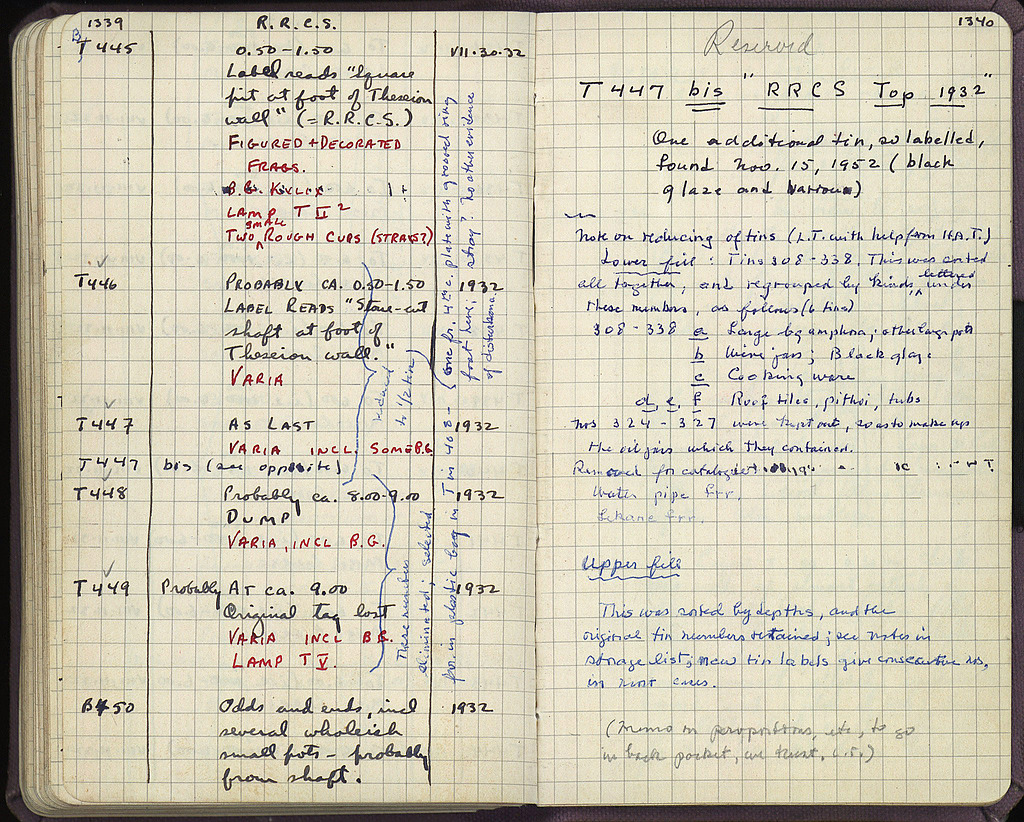 1339
R.R.C.S.
B
T 445
0.50-1.50
VII.30.32
Label reads "Square
pit at foot of Theseion
wall" (= R.R.C.S.)
FIGURED + DECORATED
FRAGS.
B.G. KYLIX 1+
LAMP T II²
SMALL
TWO ROUGH CUPS (STRAYS?)
T446
PROBABLY CA. 0.50-1.50
1932
LABEL READS "Stone-cut
shaft at foot of
Theseion wall."
VARIA
T447
AS LAST
1932
VARIA INCL. SOME B.G.
T447 bis (see opposite)
T448
Probably ca. 8.00-9.00
1932
DUMP
VARIA, INCL B.G.
T449
Probably AT ca. 9.00
1932
Original tag lost
VARIA INCL BG.
LAMP T V.
B450
Odds and ends, incl
1932
several wholeish
small pots - probably
from shaft.
reduced
to 1/2 tin
These numbers
eliminated, selected
frr. in plastic bag in Tin 408 - one fr. 4th c. plate with grooved ring
foot here, stray? No other evidence
of disturbance.
1340
Reserved
T 447 bis "RRCS Top 1932"
One additional tin, so labelled,
found Nov. 15, 1952 (black
glaze and various)
Note on reducing of tins (L.T. with help from H.A.T.)
Lower fill: Tins 308-338. This was sorted
all together, and regrouped by kinds, lettered under
these numbers, as follows (6 tins)
308-338 a Large big amphora; other large pots
b Wine jars; Black glaze
c Cooking ware
d, e, f Roof tiles, pithoi, tubs
Nos 324-327 were kept out, so as to make up
the oil jars which they contained.
Removed for
Water pipe frr.
Lekane frr.
Upper fill
This was sorted by depths, and the
original tin numbers retained; see notes in
storage list; new tin labels give consecutive nos,
in most cases.
(Memo on proportions, etc, to go
in back pocket, we trust. L.T.)